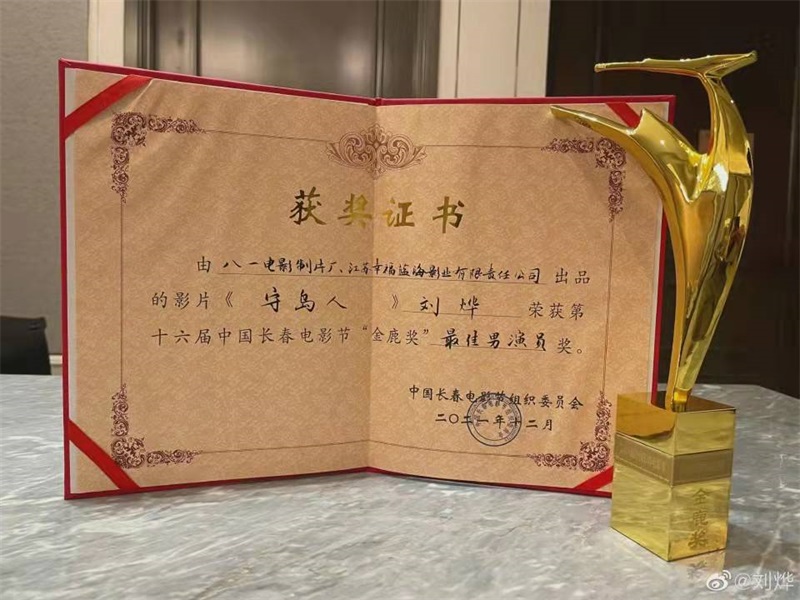 获奖证书
由 八一电影制片厂、江苏幸福蓝海影业有限责任公司 出品
的影片《 守岛人 》 刘烨 荣获第
十六届中国长春电影节“金鹿奖” 最佳男演员 奖。
中国长春电影节组织委员会
二〇二一年十二月
金鹿奖
@刘烨